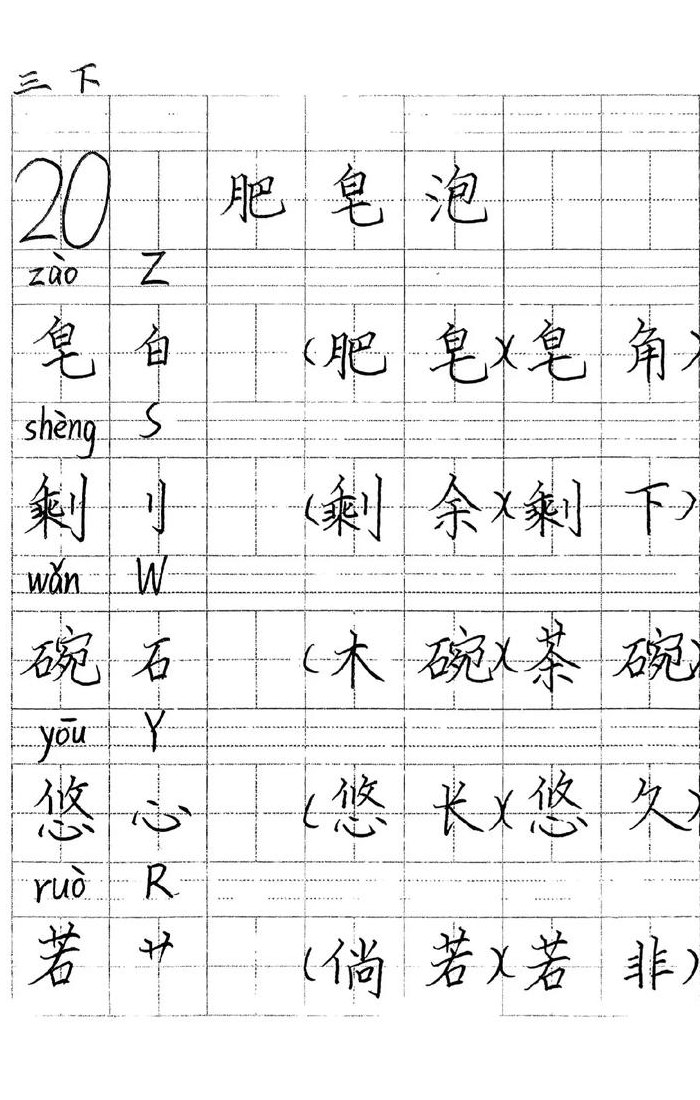 三下
20 肥皂泡
zào Z
皂 白 (肥皂)(皂角)
shèng S
剩 刂 (剩余)(剩下)
wǎn W
碗 石 (木碗)(茶碗)
yōu Y
悠 心 (悠长)(悠久)
ruò R
若 艹 (倘若)(若非)